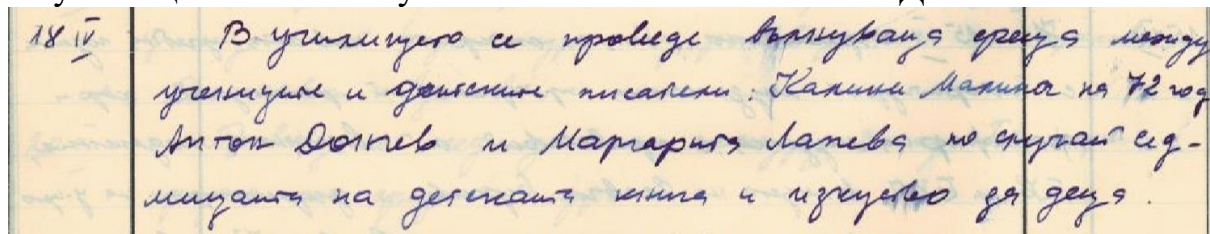 18 IV В училището се проведе вълнуваща среща между
учениците и детските писатели: Калина Малина на 72 год
Антон Дончев и Маргарита по случай сед-
мицата на детската книга и изкуство за деца.